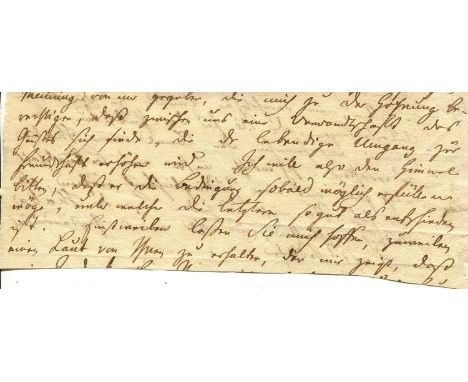 Meinung von mir gegeben, die mich zu der Hoffnung be
rechtigen, daß zwischen uns eine Verwandtschaft des
Geistes sich finde, die der lebendige Umgang zur
Freundschaft erhöhen wird. Ich will also den Himmel
bitten, daß er die Bedingung sobald möglich erfüllen
möge, unter welcher die letztere so gut als entschieden
ist. Einstweilen lassen Sie mich hoffen, zuweilen
einen Laut von Ihnen zu erhalten, der mir zeigt, daß